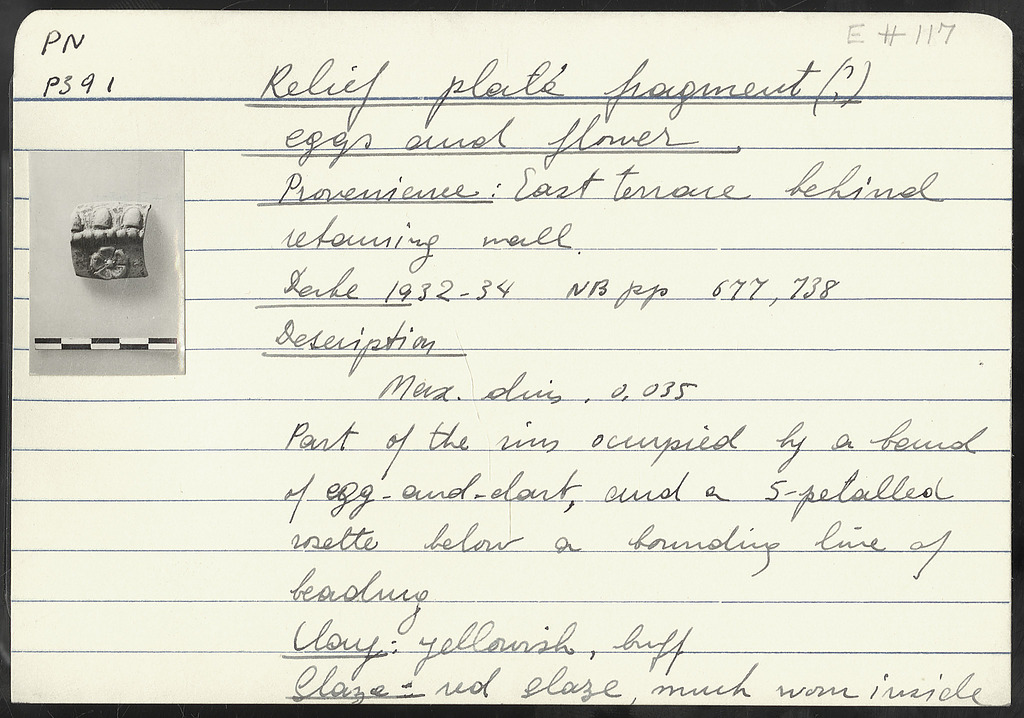 PN
P391
E # 117
Relief plate fragment (?)
eggs and flower
Provenience: East terrace behind
retaining wall
Date 1932-34 NB pp 677, 738
Description
Max. dim. 0,035
Part of the rim occupied by a band
of egg-and-dart, and a 5-petalled
rosette below a bounding line of
beading
Clay: yellowish, buff
Glaze - red glaze, much worn inside